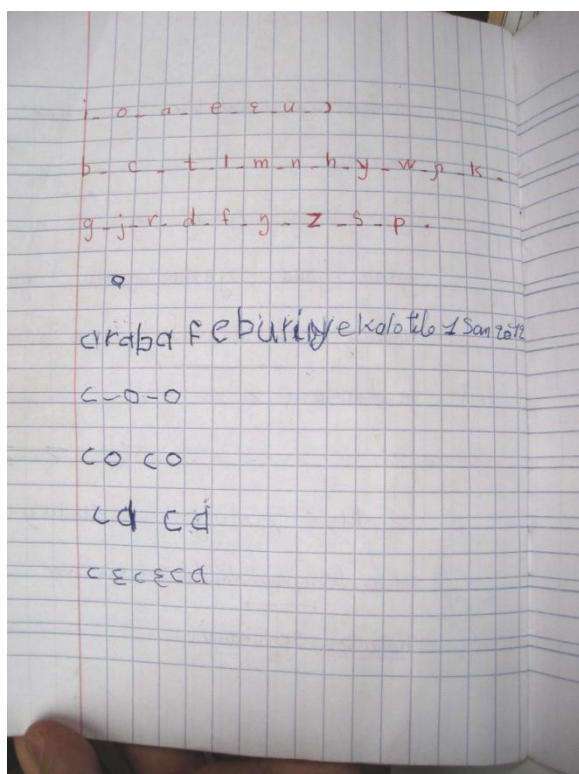 i_o_a_e_ɛ_u_ɔ
b_c_t_l_m_n_h_y_w_ɲ_k.
g_j_r_d_f_ŋ_z_s_p.
o
araba feburiye kalo tile 1 San 2012
c-o-o
co co
ca ca
cɛcɛca